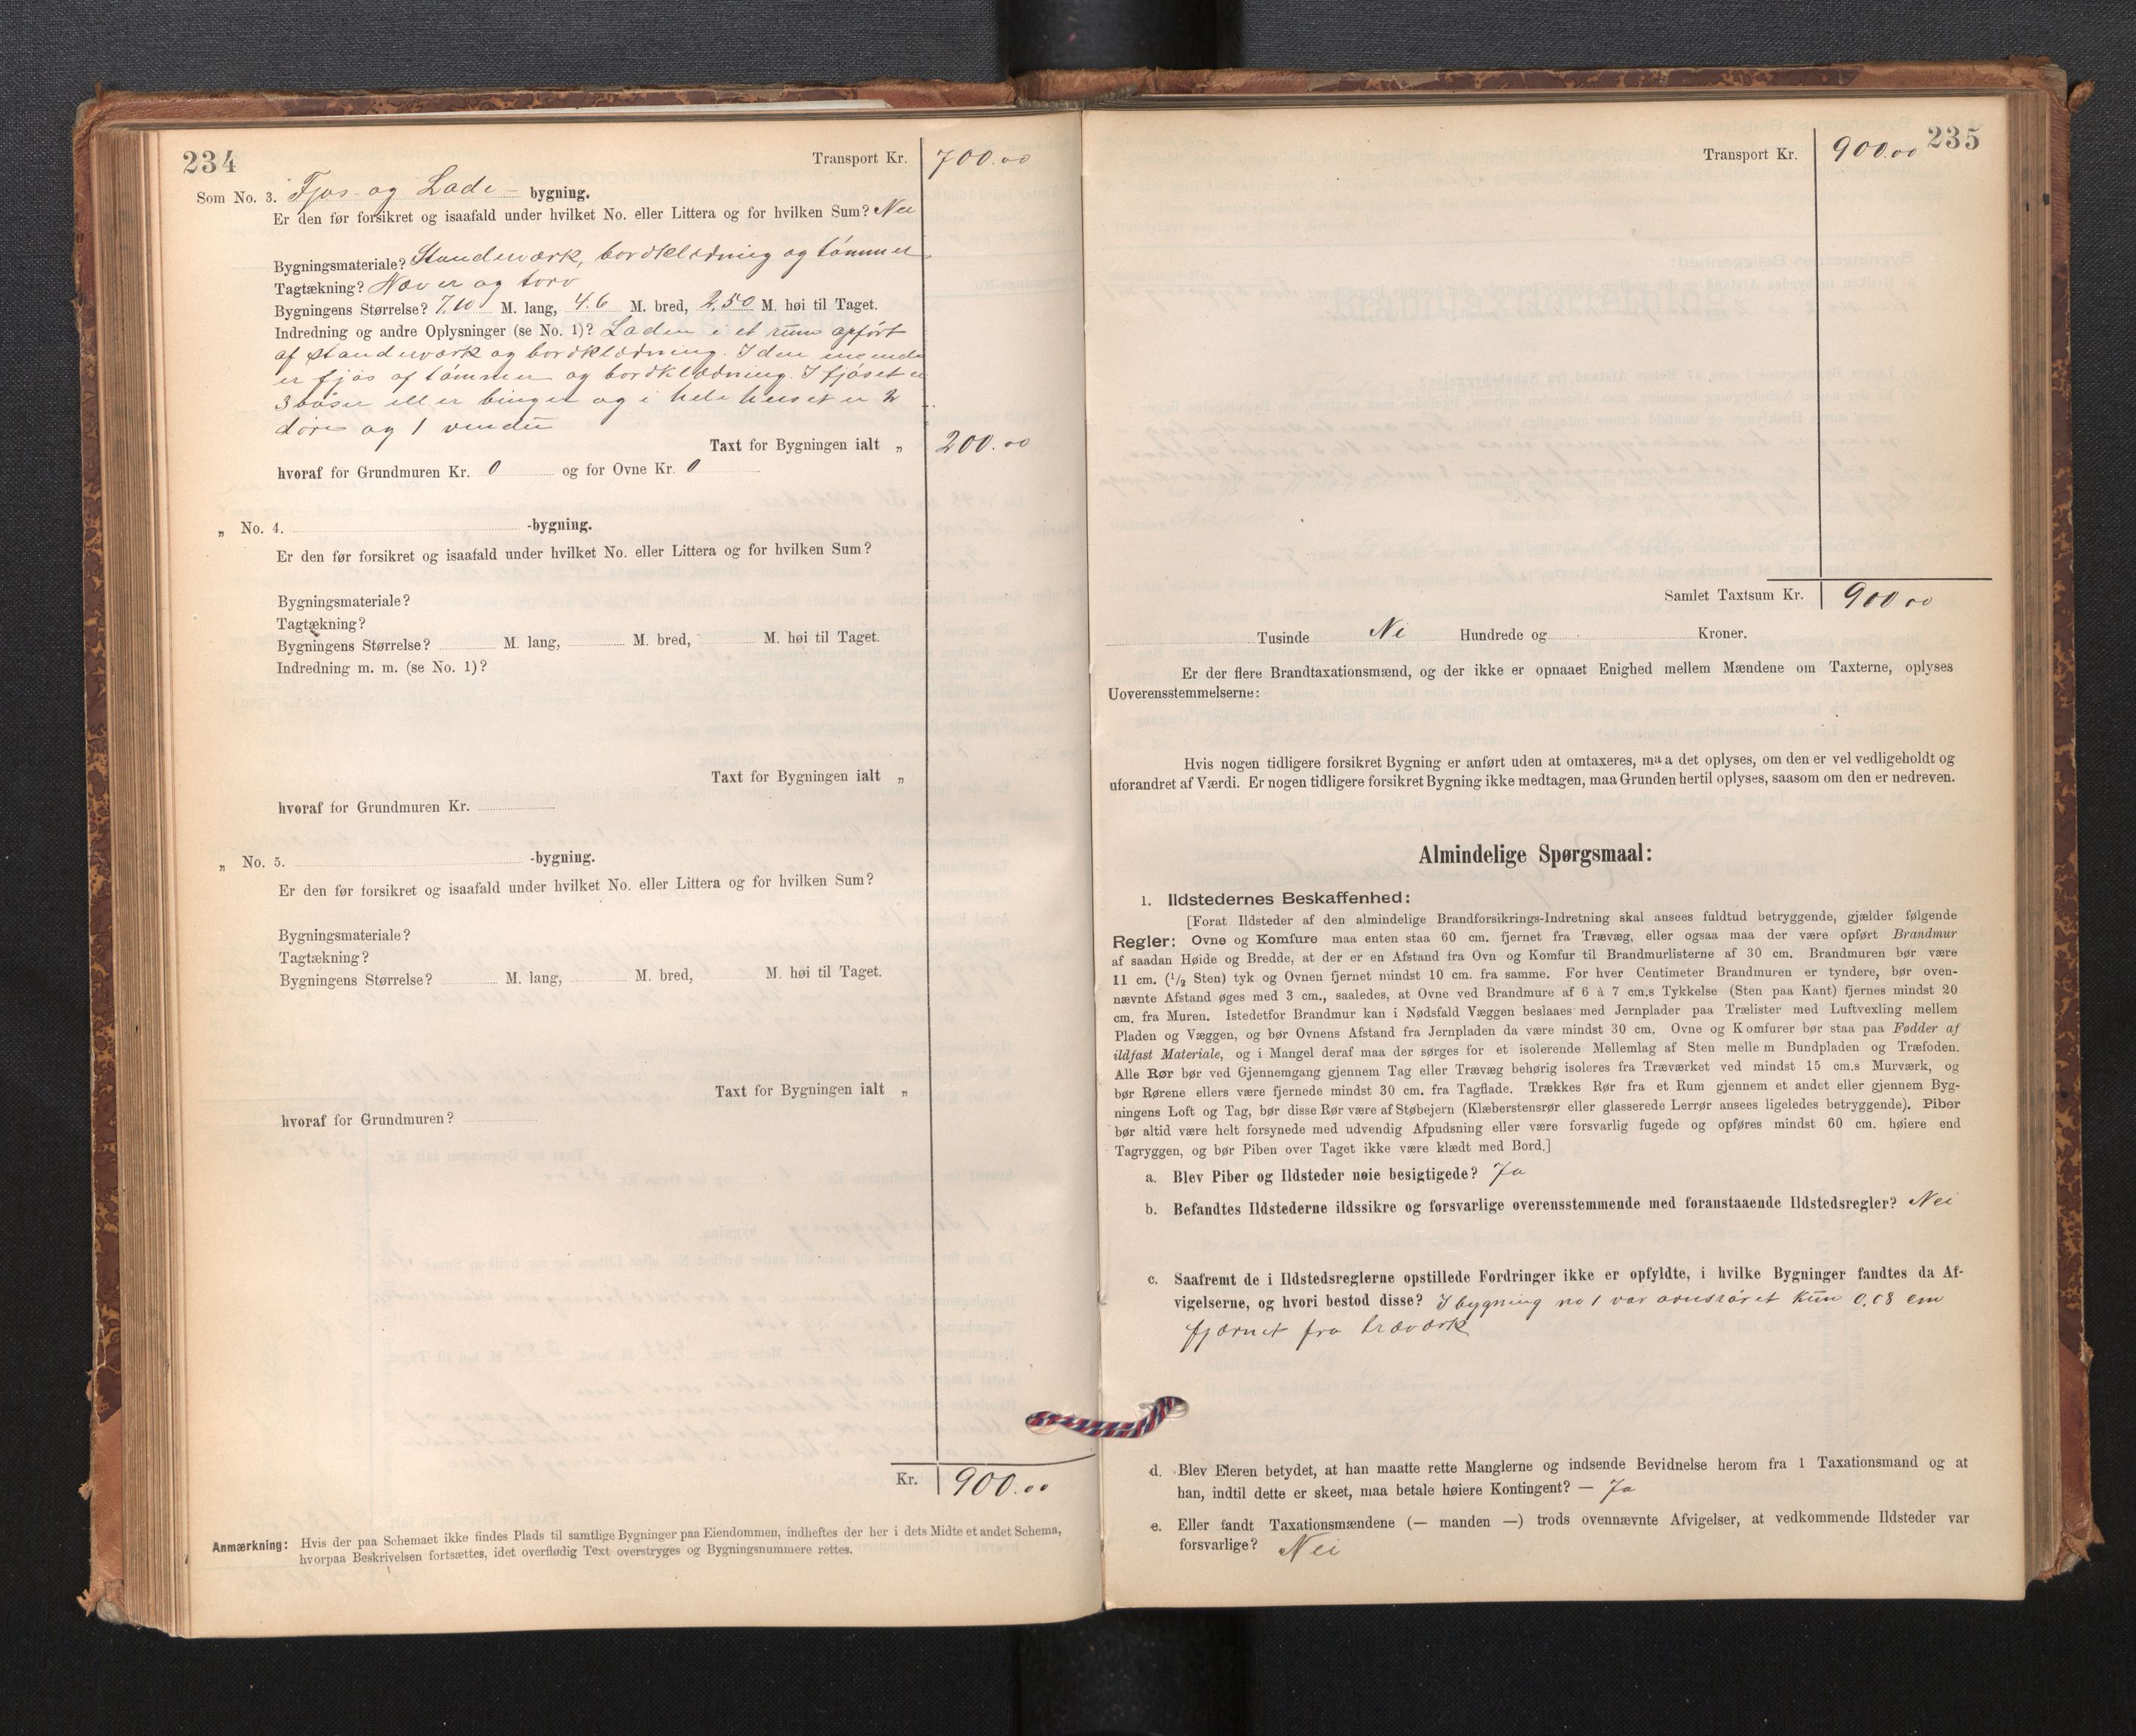 234
Transport Kr. 700.00
Som No. 3. Fjøs- og Lade- bygning.
Er den før forsikret og isaafald under hvilket No. eller Littera og for hvilken Sum? Nei
Bygningsmateriale? Standerværk, bordklædning og tømmer
Tagtækning? Næver og torv
Bygningens Størrelse? 7,10 M. lang, 4.6 M. bred, 2,50 M. høi til Taget.
Indredning og andre Oplysninger (se No. 1)? Laden i et rum opført
af standerværk og bordklædning. I den ene ende
er fjøs af tømmer og bordklædning. I fjøset er
3 båser eller binger og i hele huset er 2
døre og 1 vindu
Taxt for Bygningen ialt „ 200.00
hvoraf for Grundmuren Kr. 0 og for Ovne Kr. 0
„ No. 4. -bygning.
Er den før forsikret og isaafald under hvilket No. eller Littera og for hvilken Sum?
Bygningsmateriale?
Tagtækning?
Bygningens Størrelse? M. lang, M. bred, M. høi til Taget.
Indredning m. m. (se No. 1)?
Taxt for Bygningen ialt „
hvoraf for Grundmuren Kr.
„ No. 5. -bygning.
Er den før forsikret og isaafald under hvilket No. eller Littera og for hvilken Sum?
Bygningsmateriale?
Tagtækning?
Bygningens Størrelse? M. lang, M. bred, M. høi til Taget.
Taxt for Bygningen ialt „
hvoraf for Grundmuren?
Kr. 900.00
Anmærkning: Hvis der paa Schemaet ikke findes Plads til samtlige Bygninger paa Eiendommen, indheftes der her i dets Midte et andet Schema,
hvorpaa Beskrivelsen fortsættes, idet overflødig Text overstryges og Bygningsnummere rettes.
235
Transport Kr. 900.00
Samlet Taxtsum Kr. 900 00
Tusinde Ni Hundrede og Kroner.
Er der flere Brandtaxationsmænd, og der ikke er opnaaet Enighed mellem Mændene om Taxterne, oplyses
Uoverensstemmelserne:
Hvis nogen tidligere forsikret Bygning er anført uden at omtaxeres, maa det oplyses, om den er vel vedligeholdt og
uforandret af Værdi. Er nogen tidligere forsikret Bygning ikke medtagen, maa Grunden hertil oplyses, saasom om den er nedreven.
Almindelige Spørgsmaal:
1. Ildstedernes Beskaffenhed:
[Forat Ildsteder af den almindelige Brandforsikrings-Indretning skal ansees fuldtud betryggende, gjælder følgende
Regler: Ovne og Komfure maa enten staa 60 cm. fjernet fra Trævæg, eller ogsaa maa der være opført Brandmur
af saadan Høide og Bredde, at der er en Afstand fra Ovn og Komfur til Brandmurlisterne af 30 cm. Brandmuren bør være
11 cm. (½ Sten) tyk og Ovnen fjernet mindst 10 cm. fra samme. For hver Centimeter Brandmuren er tyndere, bør oven-
nævnte Afstand øges med 3 cm., saaledes, at Ovne ved Brandmure af 6 à 7 cm.s Tykkelse (Sten paa Kant) fjernes mindst 20
cm. fra Muren. Istedetfor Brandmur kan i Nødsfald Væggen beslaaes med Jernplader paa Trælister med Luftvexling mellem
Pladen og Væggen, og bør Ovnens Afstand fra Jernpladen da være mindst 30 cm. Ovne og Komfurer bør staa paa Fødder af
ildfast Materiale, og i Mangel deraf maa der sørges for et isolerende Mellemlag af Sten mellem Bundpladen og Træfoden.
Alle Rør bør ved Gjennemgang gjennem Tag eller Trævæg behørig isoleres fra Træværket ved mindst 15 cm.s Murværk, og
bør Rørene ellers være fjernede mindst 30 cm. fra Tagflade. Trækkes Rør fra et Rum gjennem et andet eller gjennem Byg-
ningens Loft og Tag, bør disse Rør være af Støbejern (Klæberstensrør eller glasserede Lerrør ansees ligeledes betryggende). Piber
bør altid være helt forsynede med udvendig Afpudsning eller være forsvarlig fugede og opføres mindst 60 cm. høiere end
Tagryggen, og bør Piben over Taget ikke være klædt med Bord.]
a. Blev Piber og Ildsteder nøie besigtigede? Ja
b. Befandtes Ildstederne ildssikre og forsvarlige overensstemmende med foranstaaende Ildstedsregler? Nei
c. Saafremt de i Ildstedsreglerne opstillede Fordringer ikke er opfyldte, i hvilke Bygninger fandtes da Af-
vigelserne, og hvori bestod disse? I bygning no 1 var ovnsrøret kun 0,08 cm
fjærnet fra træværk
d. Blev Eieren betydet, at han maatte rette Manglerne og indsende Bevidnelse herom fra 1 Taxationsmand og at
han, indtil dette er skeet, maa betale høiere Kontingent? — Ja
e. Eller fandt Taxationsmændene (— manden —) trods ovennævnte Afvigelser, at vedkommende Ildsteder var
forsvarlige? Nei